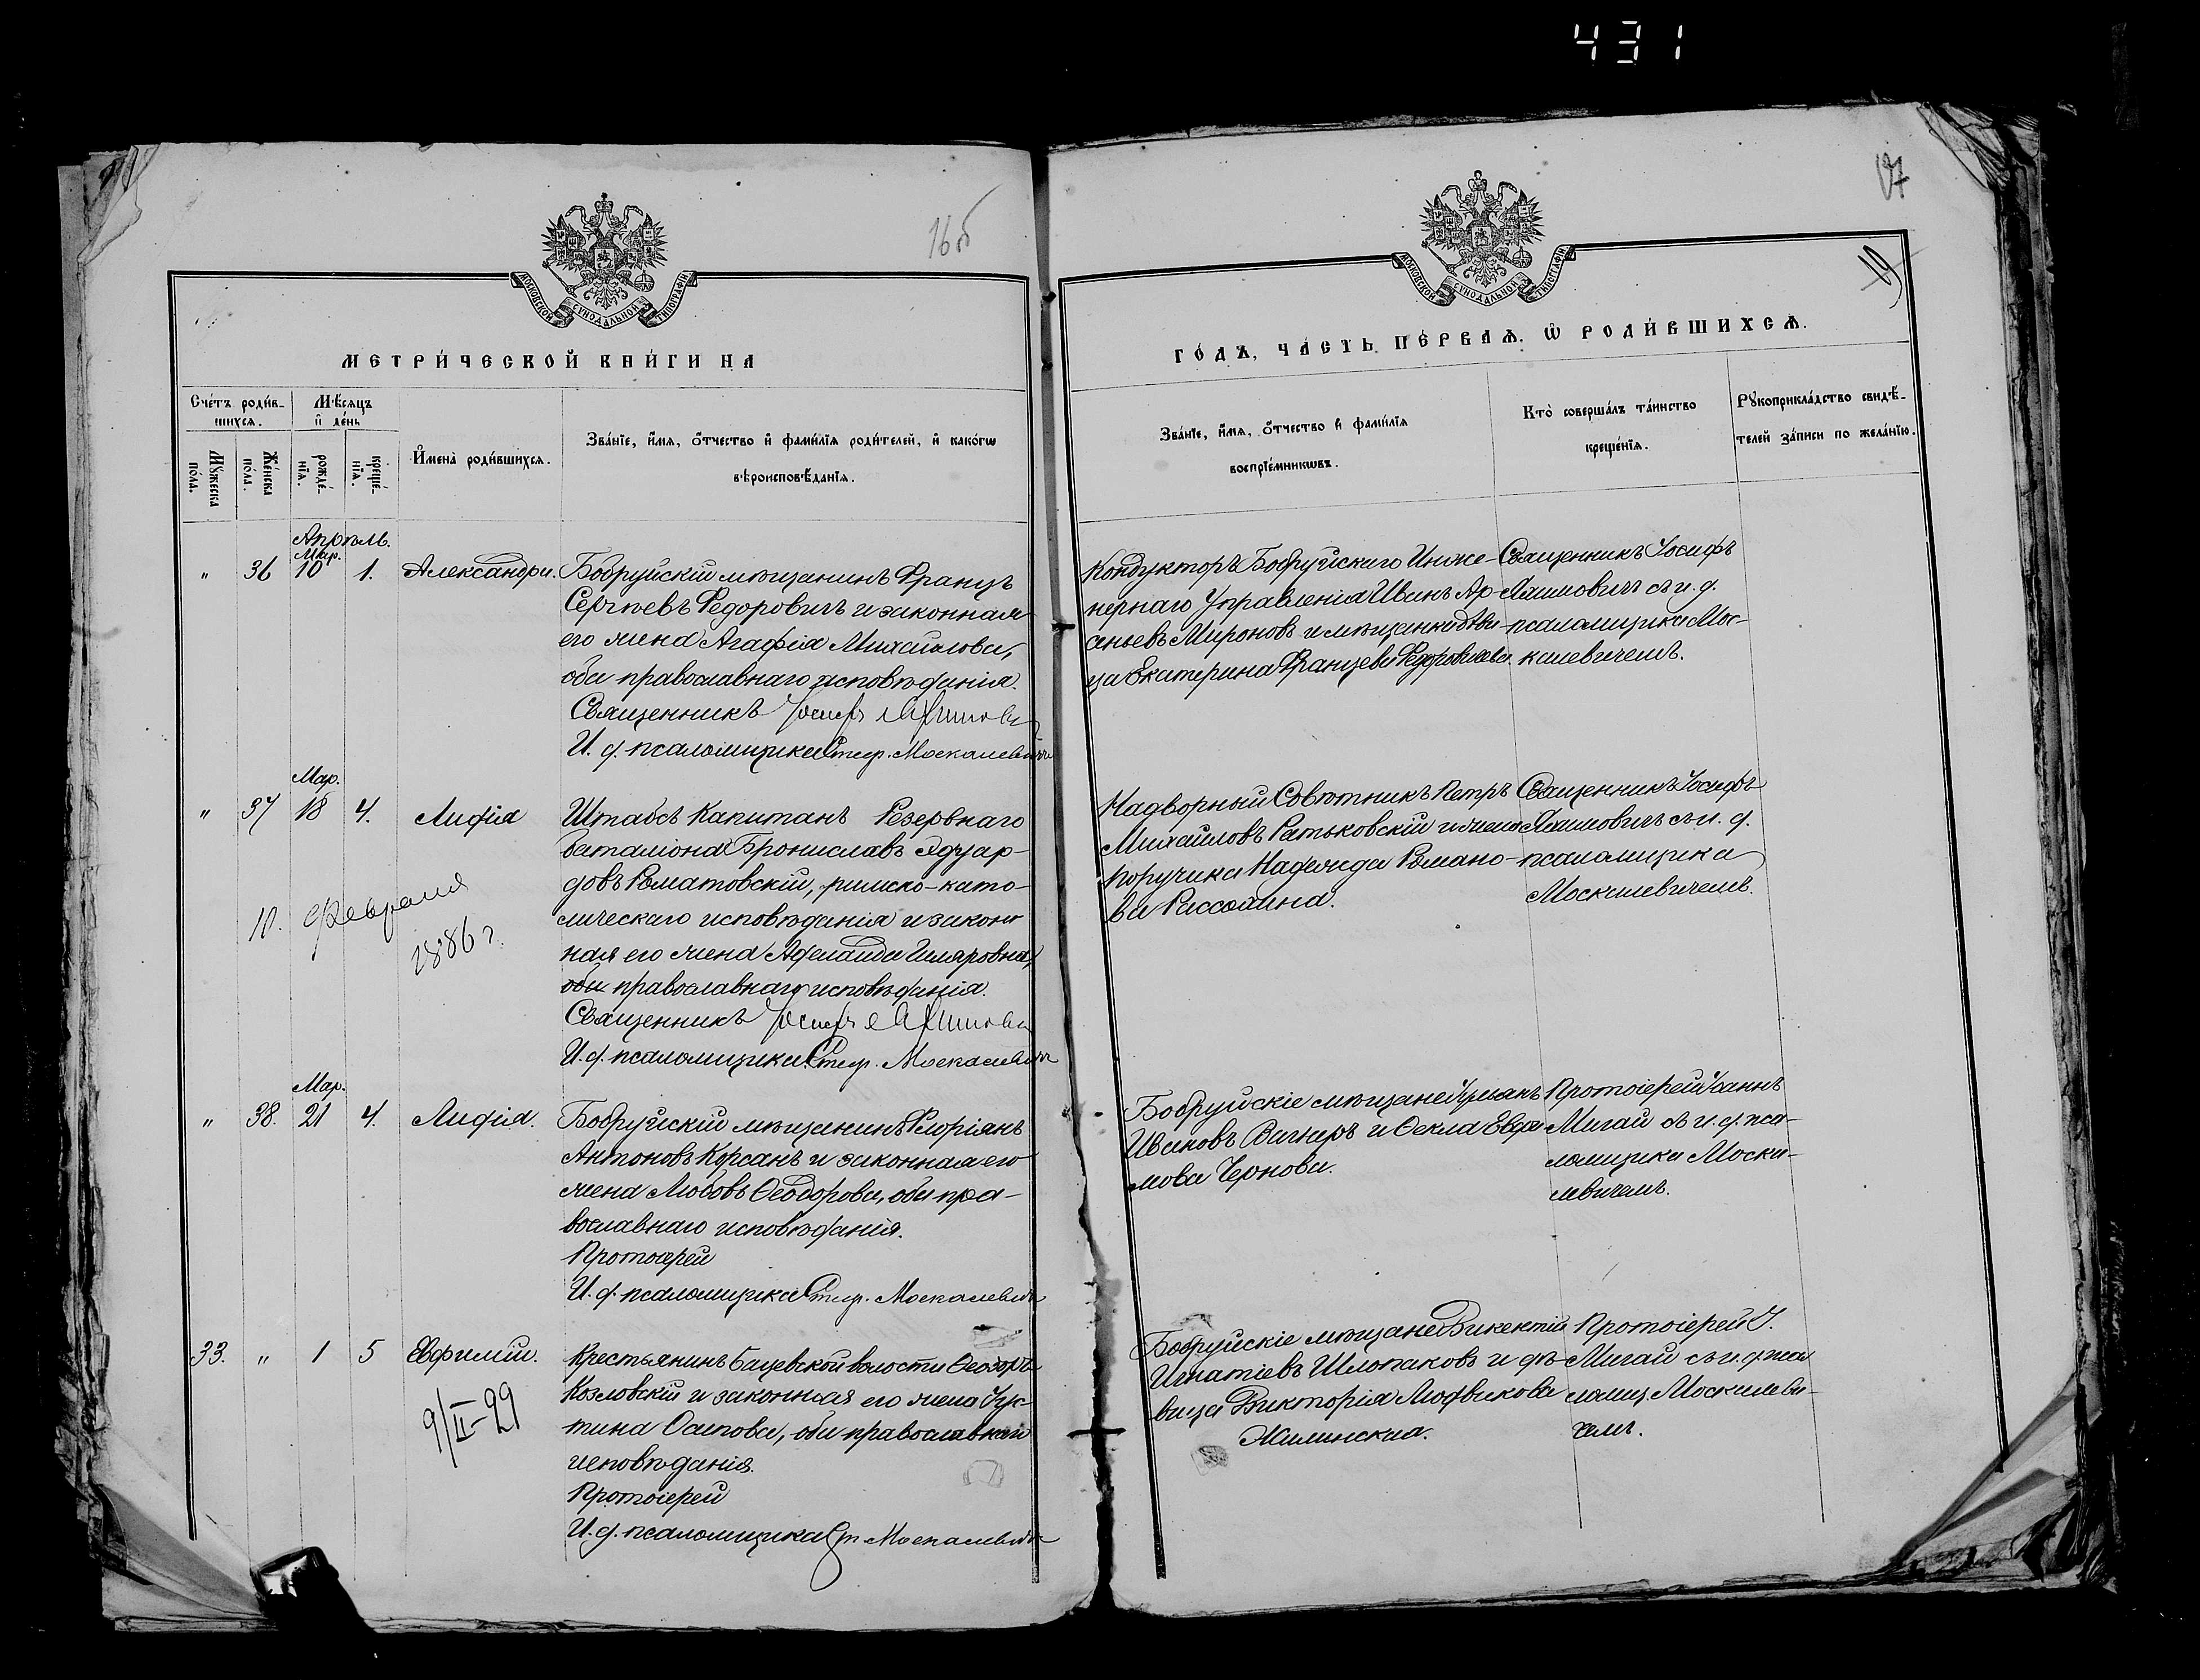 431
16об
МОСКОВСКОЙ СѴНОДАЛЬНОЙ ТИПОГРАФІИ
МЕТРИ́ЧЕСКОЙ КНИ́ГИ НА
Сче́тъ роди́в-
шихсѧ.
Мѣ́сяцъ
и҆ де́нь
Мꙋ́жеска
по́ла.
Же́нска
по́ла.
рожде́-
нїѧ.
креще́-
нїѧ.
И҆мена̀ роди́вшихсѧ.
Зва́нїе, и҆́мѧ, ѻ҆́тчество и҆ фами́лїѧ роди́телей, и҆ како́гѡ
вѣроисповѣ́данїѧ.
Апрѣль.
Мар.
" 36 10 1. Александра. Бобруйскій мѣщанинъ Францъ
Сергѣевъ Федоровичъ и законная
его жена Агафія Михайлова,
оба православнаго исповѣданія.
Священникъ Іосифъ
И. д. псаломщика Стеф. Москалевичъ
Мар.
" 37 18 4. Лидія Штабсъ Капитанъ Резервнаго
баталіона Брониславъ Эдуар-
довъ Роматовскій, римско-като-
лическаго исповѣданія и закон
ная его жена Аделаида Иляровна,
оба православнаго исповѣданія.
10. Февраля
1886 г.
Священникъ Іосифъ
И. д. псаломщика Стеф. Москалевичъ
Мар.
" 38. 21 4. Лидія. Бобруйскій мѣщанинъ Флоріянъ
Антоновъ Корсанъ и законная его
жена Любовь Ѳеодорова, оба пра-
вославнаго исповѣданія.
Протоіерей
И. д. псаломщика Стеф. Москалевичъ
33. " 1 5 Евфимій. Крестьянинъ Бацевской волости Ѳеодоръ
Козловскій и законная его жена Іус-
тина Осипова, оба православнаго
исповѣданія.
9/II-29
Протоіерей
И. д. псаломщика Ст Москалевичъ
19
МОСКОВСКОЙ СѴНОДАЛЬНОЙ ТИПОГРАФІИ
ГО́ДЪ, ЧА́СТЬ ПЕ́РВАѦ, Ѡ҆ РОДИ́ВШИХСѦ.
Зва́нїе, и҆́мѧ, ѻ҆́тчество и҆ фами́лїѧ
воспрїе́мникѡвъ.
Кто̀ соверша́лъ та́инство
креще́нїѧ.
Рꙋкоприкла́дство свидѣ́-
телей за́писи по жела́нїю.
Кондукторъ Бобруйскаго Инже-
нернаго Управленія Иванъ Ар-
сеньевъ Мироновъ и мѣщанка дѣви-
ца Екатерина Францева Федоровичева
Священникъ Іосифъ
съ и. д.
псаломщика Мос-
калевичемъ.
Надворный Совѣтникъ Петръ
Михайловъ Ратьковскій и жена
поручика Надежда Романо-
ва Рассохина.
Священникъ Іосифъ
съ и. д.
псаломщика
Москалевичемъ.
Бобруйскіе мѣщане
Ивановъ Вагнеръ и Ѳекла Евфи-
мова Чернова.
Протоіерей Іоаннъ
Мигай съ и. д. пса-
ломщика Моска-
левичемъ.
Бобруйскіе мѣщане Викентій
Игнатіевъ Шлопаковъ и дѣ-
вица Викторія Людвикова
Жилинская.
Протоіерей І.
Мигай съ и. д. пса
ломщ. Москалеви-
чемъ.